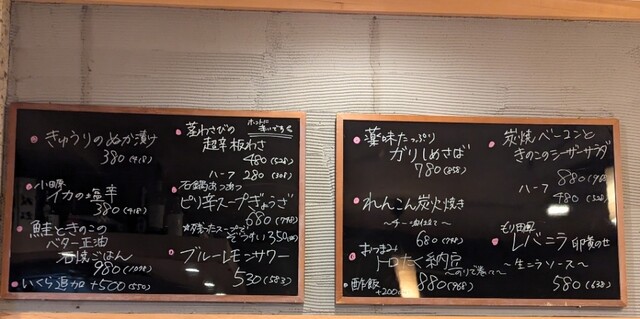 きゅうりのぬか漬け
380(418)
小田原
イカの塩辛
380(418)
鮭ときのこの
バター正油
石焼ごはん
980(1078)
いくら追加 +500(550)
茎わさびの
超辛板わさ
480(528)
ハーフ 280(308)
石鍋あつあつ
ピリ辛スープぎょうざ
680(748)
ぞうすい350
ブルーレモンサワー
530(583)
薬味たっぷり
ガリしめさば
780(858)
れんこん炭火焼き
680(748)
おつまみ
トロたく納豆
〜のりで巻いて〜
酢飯
+200
880(968)
炭焼ベーコンと
きのこのシーザーサラダ
880
ハーフ
480(528)
レバニラ 卵黄のせ
〜生ニラソース〜
580(638)